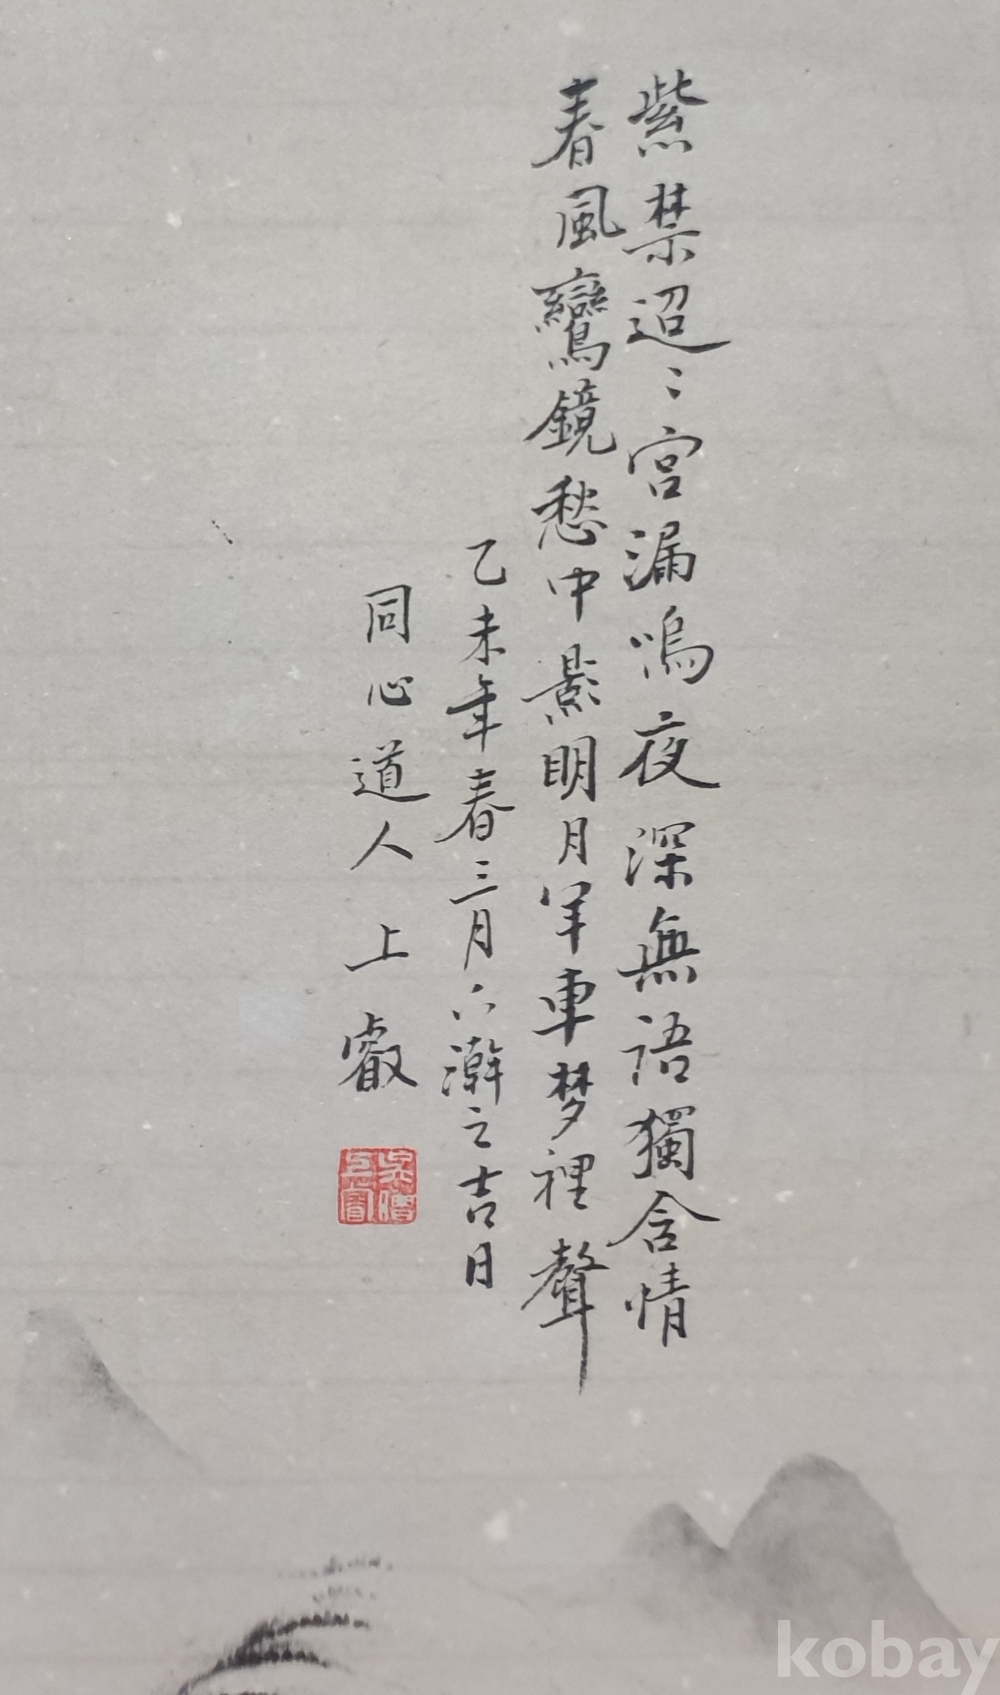 紫禁迢〻宮漏鳴夜深無語獨含情
春風鸞鏡愁中影明月羊車梦裡聲
乙未年春三月六澣之吉日
同心道人上叡
kobay